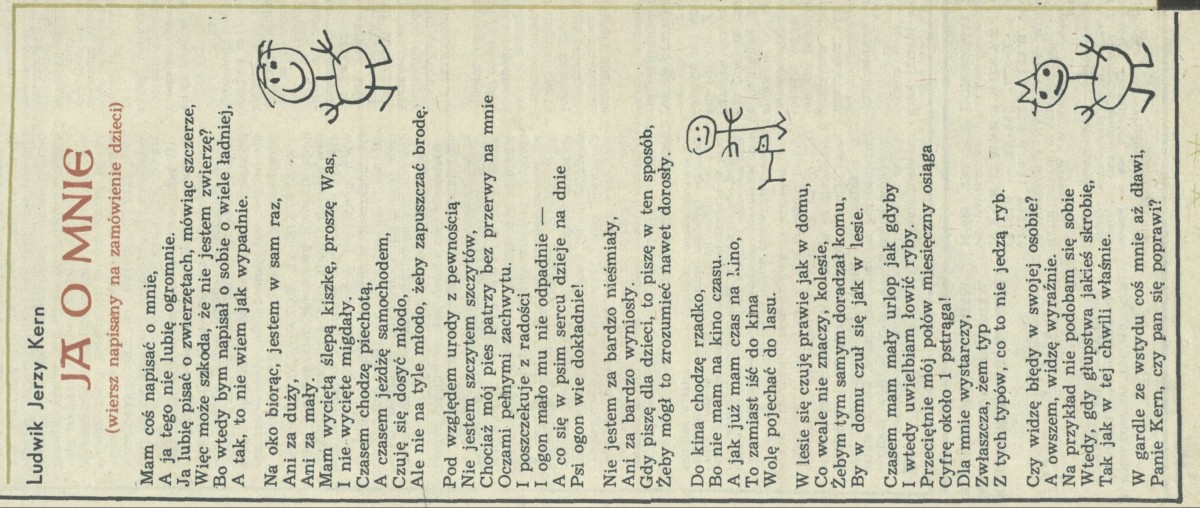 Ludwik Jerzy Kern
JA O MNIE
(wiersz napisany na zamówienie dzieci)
Mam coś napisać o mnie,
A ja tego nie lubię ogromnie.
Ja lubię pisać o zwierzętach, mówiąc szczerze,
Więc może szkoda, że nie jestem zwierzę?
Bo wtedy bym napisał o sobie o wiele ładniej,
A tak, to nie wiem jak wypadnie.
Na oko biorąc, jestem w sam raz,
Ani za duży,
Ani za mały.
Mam wyciętą ślepą kiszkę, proszę Was,
I nie wycięte migdały.
Czasem chodzę piechotą,
A czasem jeżdżę samochodem,
Czuję się dosyć młodo,
Ale nie na tyle młodo, żeby zapuszczać brodę.
Pod względem urody z pewnością
Nie jestem szczytem szczytów,
Chociaż mój pies patrzy bez przerwy na mnie
Oczami pełnymi zachwytu.
I poszczekuje z radości
I ogon mało mu nie odpadnie —
A co się w psim sercu dzieje na dnie
Psi ogon wie dokładnie!
Nie jestem za bardzo nieśmiały,
Ani za bardzo wyniosły.
Gdy piszę dla dzieci, to piszę w ten sposób,
Żeby mógł to zrozumieć nawet dorosły.
Do kina chodzę rzadko,
Bo nie mam na kino czasu.
A jak już mam czas na kino,
To zamiast iść do kina
Wolę pojechać do lasu.
W lesie się czuję prawie jak w domu,
Co wcale nie znaczy, kolesie,
Żebym tym samym doradzał komu,
By w domu czuł się jak w lesie.
Czasem mam mały urlop jak gdyby
I wtedy uwielbiam łowić ryby.
Przeciętnie mój połów miesięczny osiąga
Cyfrę około 1 pstrąga!
Dla mnie wystarczy,
Zwłaszcza, żem typ
Z tych typów, co to nie jedzą ryb.
Czy widzę błędy w swojej osobie?
A owszem, widzę wyraźnie.
Na przykład nie podobam się sobie
Wtedy, gdy głupstwa jakieś skrobię,
Tak jak w tej chwili właśnie.
W gardle ze wstydu coś mnie aż dławi,
Panie Kern, czy pan się poprawi?